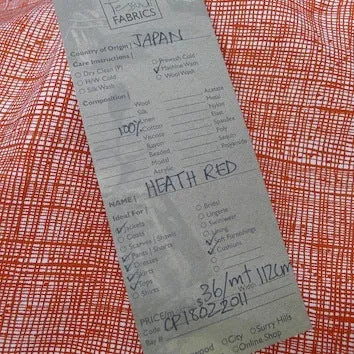 FABRICS
Country of Origin | JAPAN
Care Instructions |
Dry Clean (P) Prewash Cold
H/W Cold Machine Wash
Silk Wash Wool Wash
Composition |
Wool Acetate
Silk Metal
Linen Nylon
100% Cotton Spandex
Viscose Poly
Rayon
Beaded
Modal
Acrylic
NAME | HEATH RED
Ideal For |
Jackets Bridal
Coats Lingerie
Scarves | Shawls Swimwear
Pants | Shorts Lining
Dresses Soft Furnishings
Skirts Cushions
Tops
Shirts
PRICE $36/mt Width 112cm
Code CP1802 2011
Bay #
City Surry Hills
Online Shop